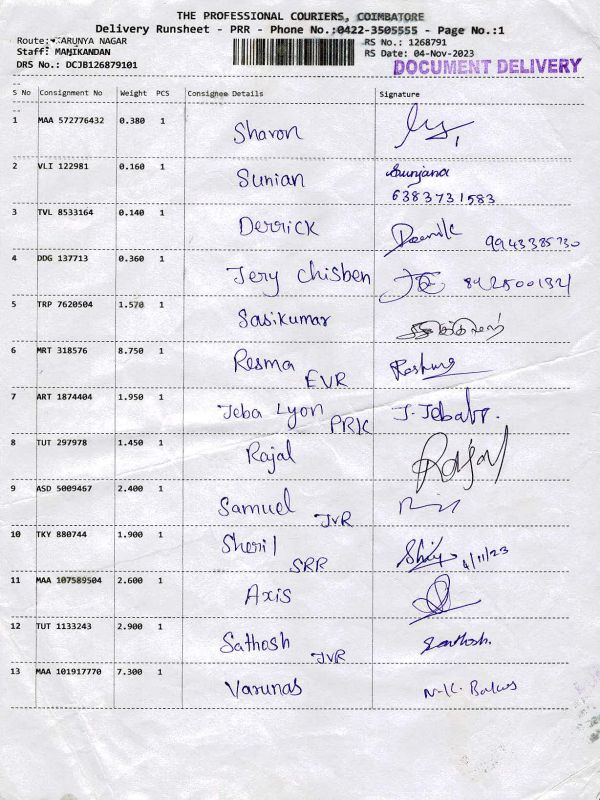 THE PROFESSIONAL COURIERS, COIMBATORE
Delivery Runsheet - PRR - Phone No.:0422-3505555 - Page No.:1
Route: KARUNYA NAGAR RS No.: 1268791
Staff: MANIKANDAN RS Date: 04-Nov-2023
DRS No.: DCJB126879101 DOCUMENT DELIVERY
S No Consignment No Weight PCS Consignee Details Signature
1 MAA 572776432 0.380 1 Sharon
2 VLI 122981 0.160 1 Sunian Sunjana
6383731583
3 TVL 8533164 0.140 1 Derrick Derrick 9943385730
4 DDG 137713 0.360 1 Jery Chisben
5 TRP 7620504 1.570 1 Sasikumar
6 MRT 318576 8.750 1 Resma Reshma
EVR
7 ART 1874404 1.950 1 Jeba Lyon
PRK
8 TUT 297978 1.450 1 Rajal Rajal
9 ASD 5009467 2.400 1 Samuel
JVR
10 TKY 880744 1.900 1 Sheril 4/11/23
SRR
11 MAA 107589504 2.600 1 Axis
12 TUT 1133243 2.900 1 Sathosh Santhosh.
JVR
13 MAA 101917770 7.300 1 Varunas